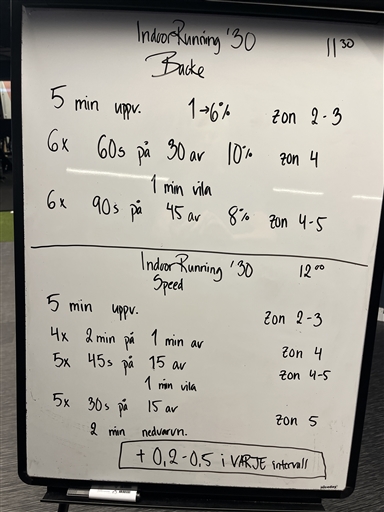 Indoor Running '30 11³⁰
Backe
5 min uppv. 1→6% zon 2-3
6x 60s på 30 av 10% zon 4
1 min vila
6x 90s på 45 av 8% zon 4-5
Indoor Running '30 12⁰⁰
Speed
5 min uppv. zon 2-3
4x 2 min på 1 min av zon 4
5x 45s på 15 av zon 4-5
1 min vila
5x 30s på 15 av zon 5
2 min nedvarvn.
+ 0,2-0,5 i VARJE intervall